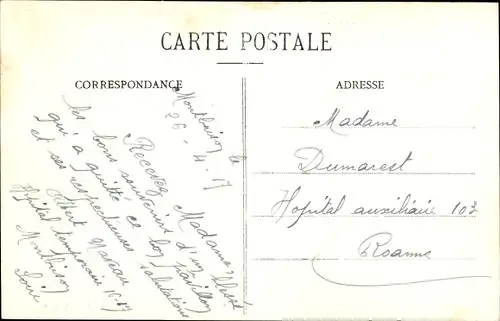 CARTE POSTALE
CORRESPONDANCE
ADRESSE
Montbrison le
26-4-17
Recevez Madame
les bons souvenirs d'un blessé
qui a quitté ce bon pavillon
et ses respectueuses salutations
Albert
Hopital temporaire 16-17
Montbrison
Loire
Madame
Dumarest
Hopital auxiliaire 103
Roanne